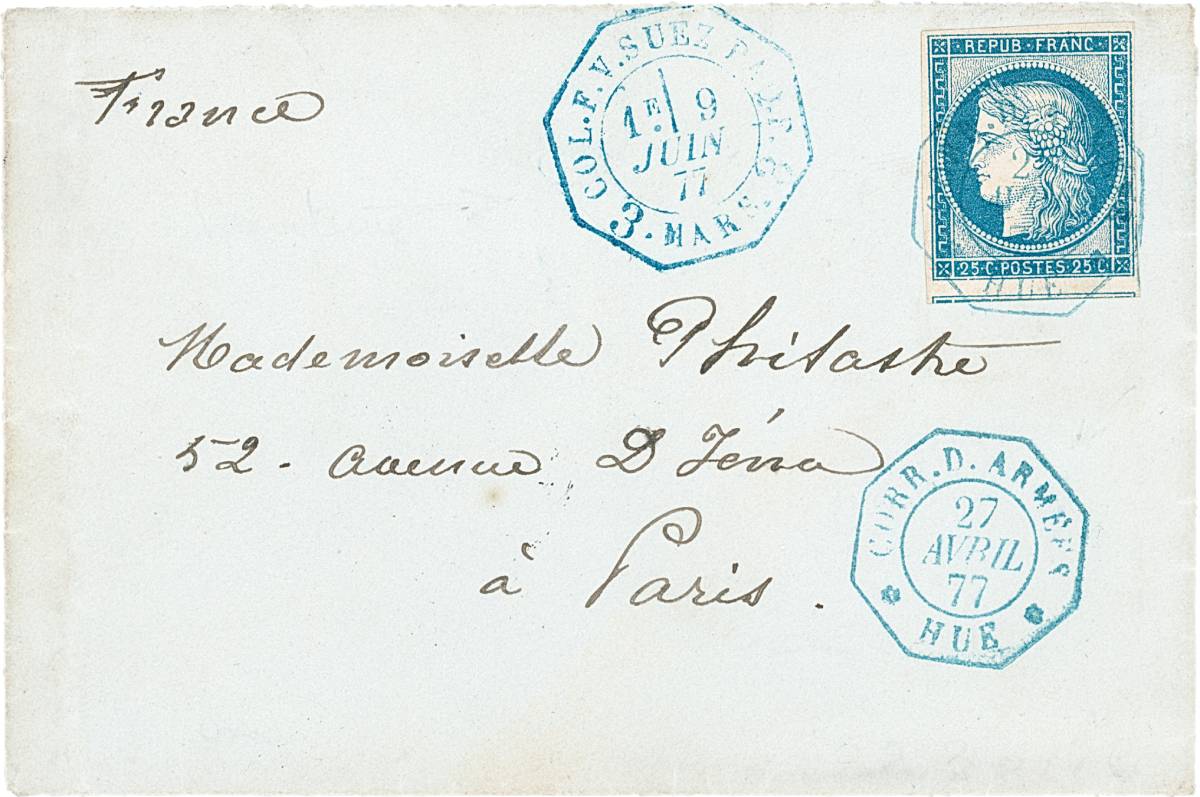 France
COL. F. V. SUEZ PAQ. FR. 3 MARS. 3
1E 9
JUIN
77
REPUB · FRANC ·
25 · C · POSTES · 25 C
HUE
Mademoiselle Philastre
52 - avenue D Iéna
à Paris .
CORR. D. ARMÉES
27
AVRIL
77
HUE